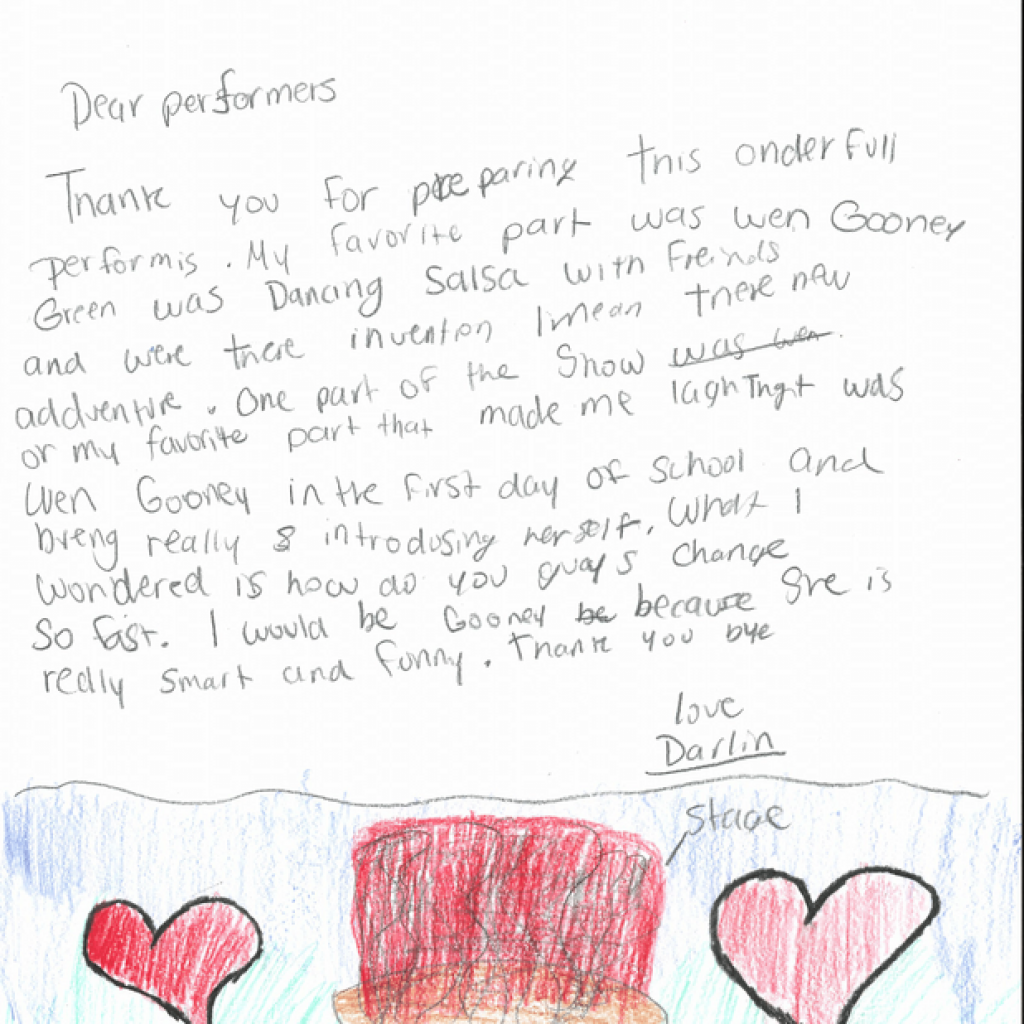 Dear performers
Thank you for preparing this onderfull
performis. My favorite part was wen Gooney
Green was Dancing Salsa with Freinds
and were there invention I mean there new
addventure. One part of the Show was wen.
or my favorite part that made me laghTngt was
wen Gooney in the first day of school and
breng really introdusing herself. What I
wondered is how do you guays change
So fast. I would be Gooney be because She is
really smart and funny. Thank you bye
love
Darlin
stage